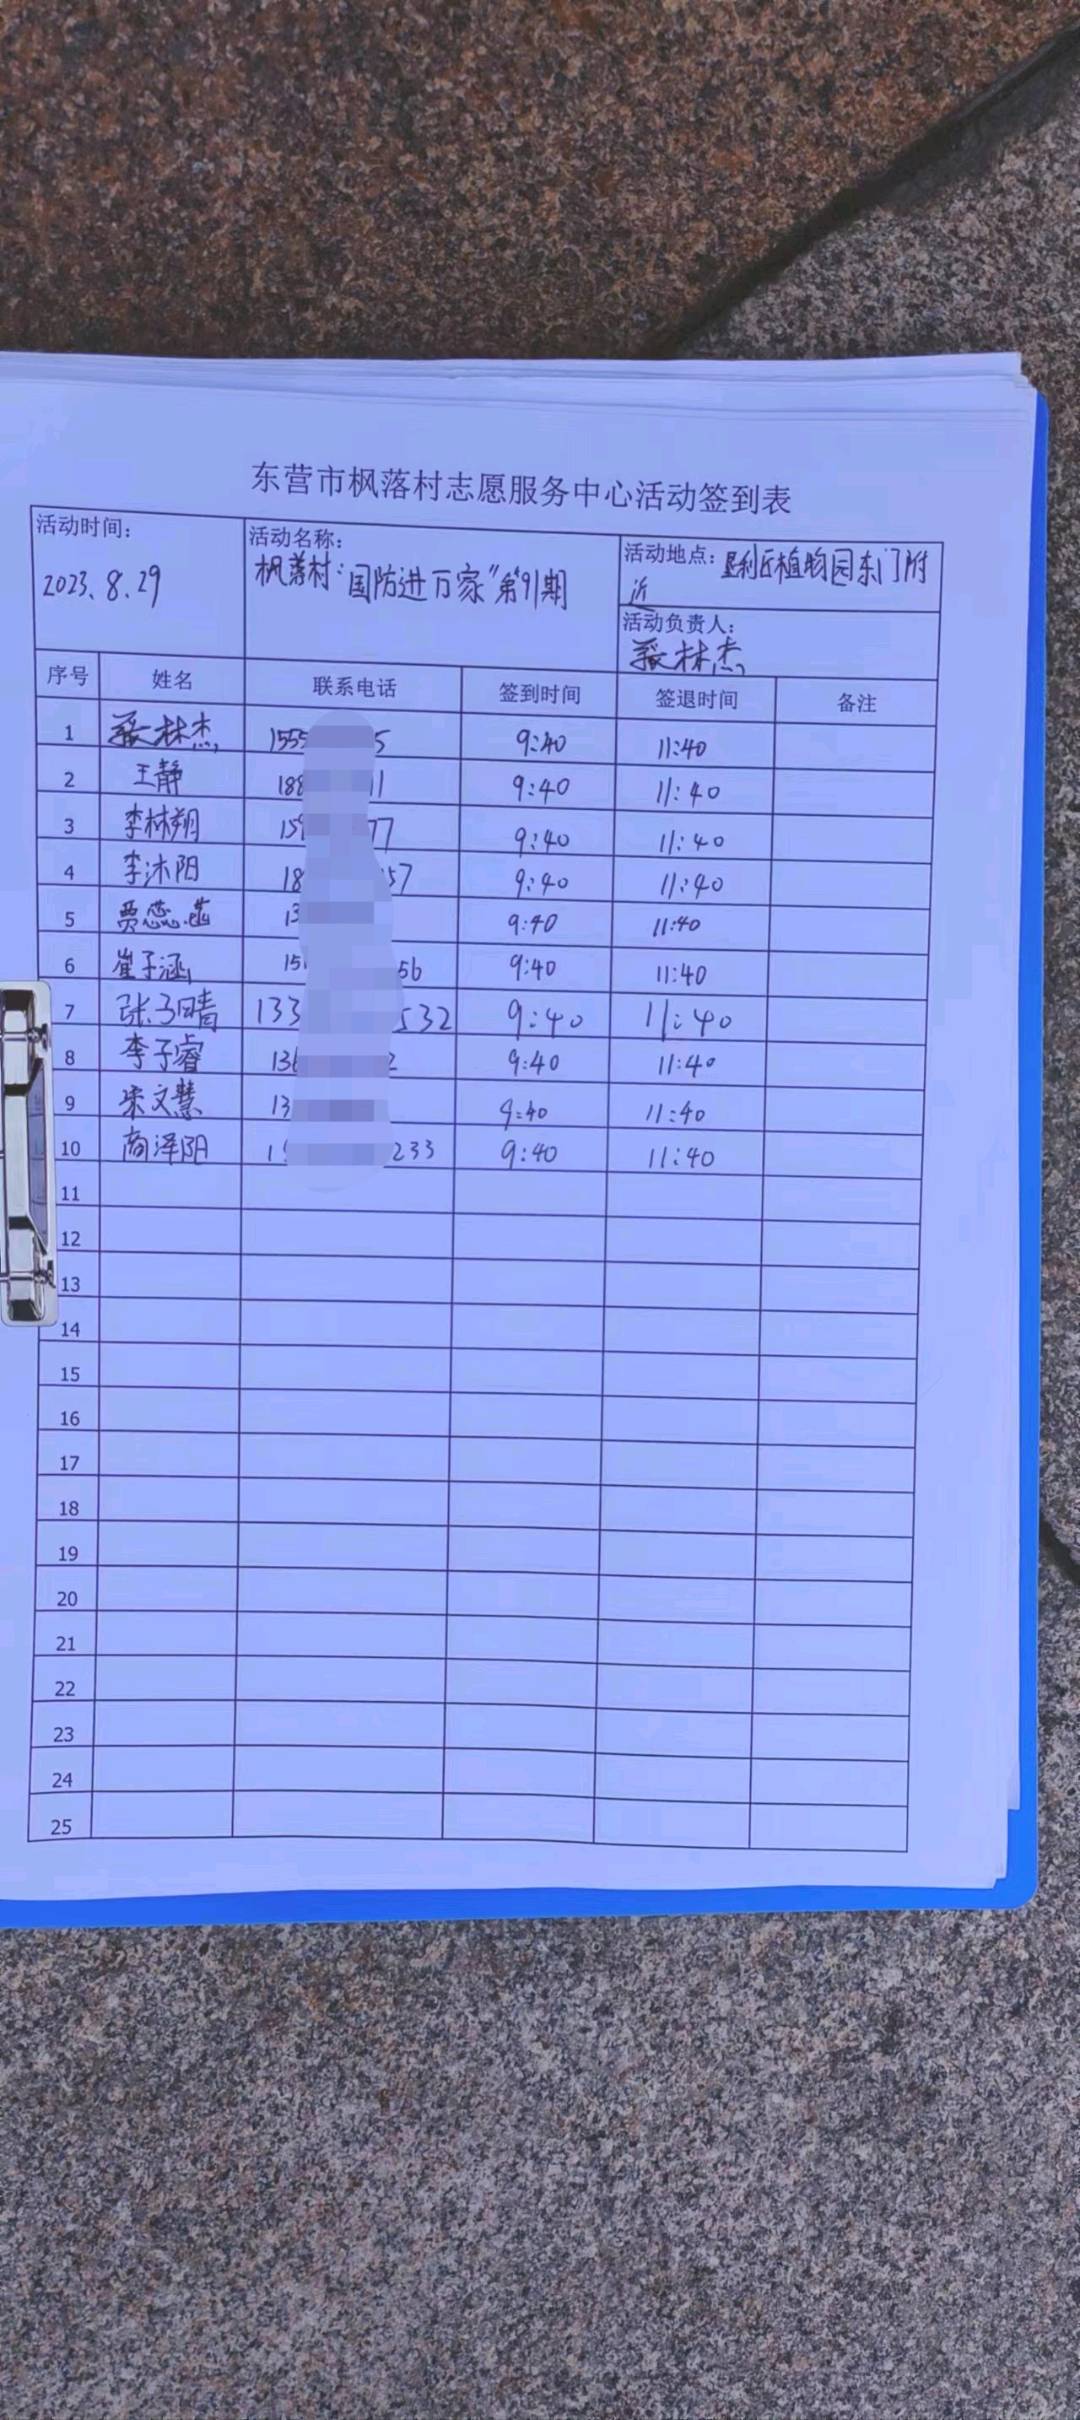 东营市枫落村志愿服务中心活动签到表
活动时间: 活动名称: 活动地点: 垦利区植物园东门附近
2023.8.29 枫落村“国防进万家”第91期
活动负责人: 林杰
序号 姓名 联系电话 签到时间 签退时间 备注
1 林杰 155 5 9:40 11:40
2 王静 188 11 9:40 11:40
3 李林翔 15 77 9:40 11:40
4 李沐阳 18 57 9:40 11:40
5 贾蕊菡 13 9:40 11:40
6 崔子涵 15 56 9:40 11:40
7 张子晴 133 532 9:40 11:40
8 李子睿 136 2 9:40 11:40
9 宋文慧 13 9:40 11:40
10 商泽阳 1 233 9:40 11:40
11
12
13
14
15
16
17
18
19
20
21
22
23
24
25